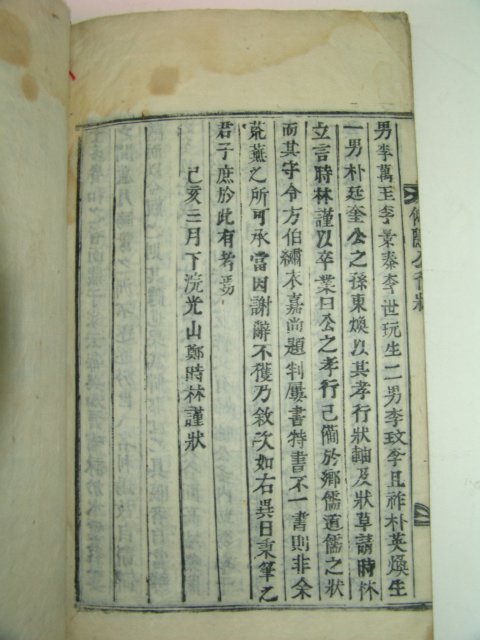 男李萬玉李彙秦李世玩生二男李玟李且祥朴英煥生
一男朴廷奎公之孫東煥以其孝行狀軸及狀草請時林
立言時林謹以卒業曰公之孝行已闡於鄉儒道儒之狀
而其守令方伯繡衣嘉尚題判屢書特書不一書則非余
荒蕪之所可承當因謝辭不獲乃敘次如右異日秉筆之
君子庶於此有考焉
己亥三月下浣光山鄭時林謹狀